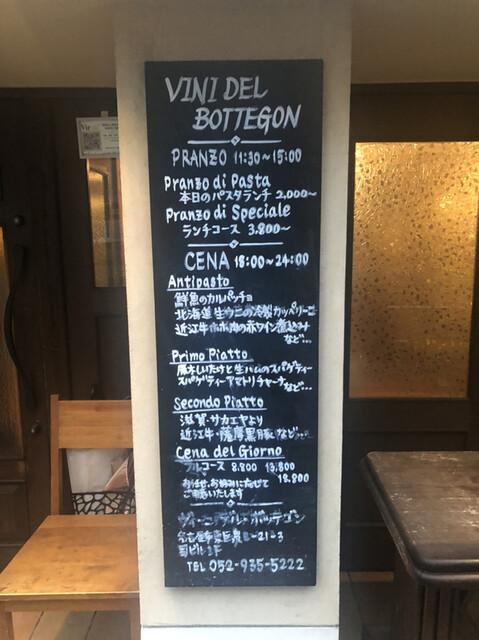 VINI DEL
BOTTEGON
PRANZO 11:30〜15:00
Pranzo di Pasta
本日のパスタランチ 2,000〜
Pranzo di Speciale
ランチコース 3.800〜
CENA 18:00〜24:00
Antipasto
鮮魚のカルパッチョ
北海道 生ウニの冷製カッペリーニ
近江牛ホホ肉の赤ワイン煮込み
など…
Primo Piatto
原木しいたけと生ハムのスパゲティー
スパゲティーアマトリチャーナ など…
Secondo Piatto
滋賀・サカエヤより
近江牛・薩摩黒豚 など…
Cena del Giorno
フルコース 8.800 13.800
18.800
お任せ、お好みにあわせて
ご用意いたします
ヴィーニ・デル・ボッテゴン
名古屋市東区泉
ビル1F
TEL 052-935-5222